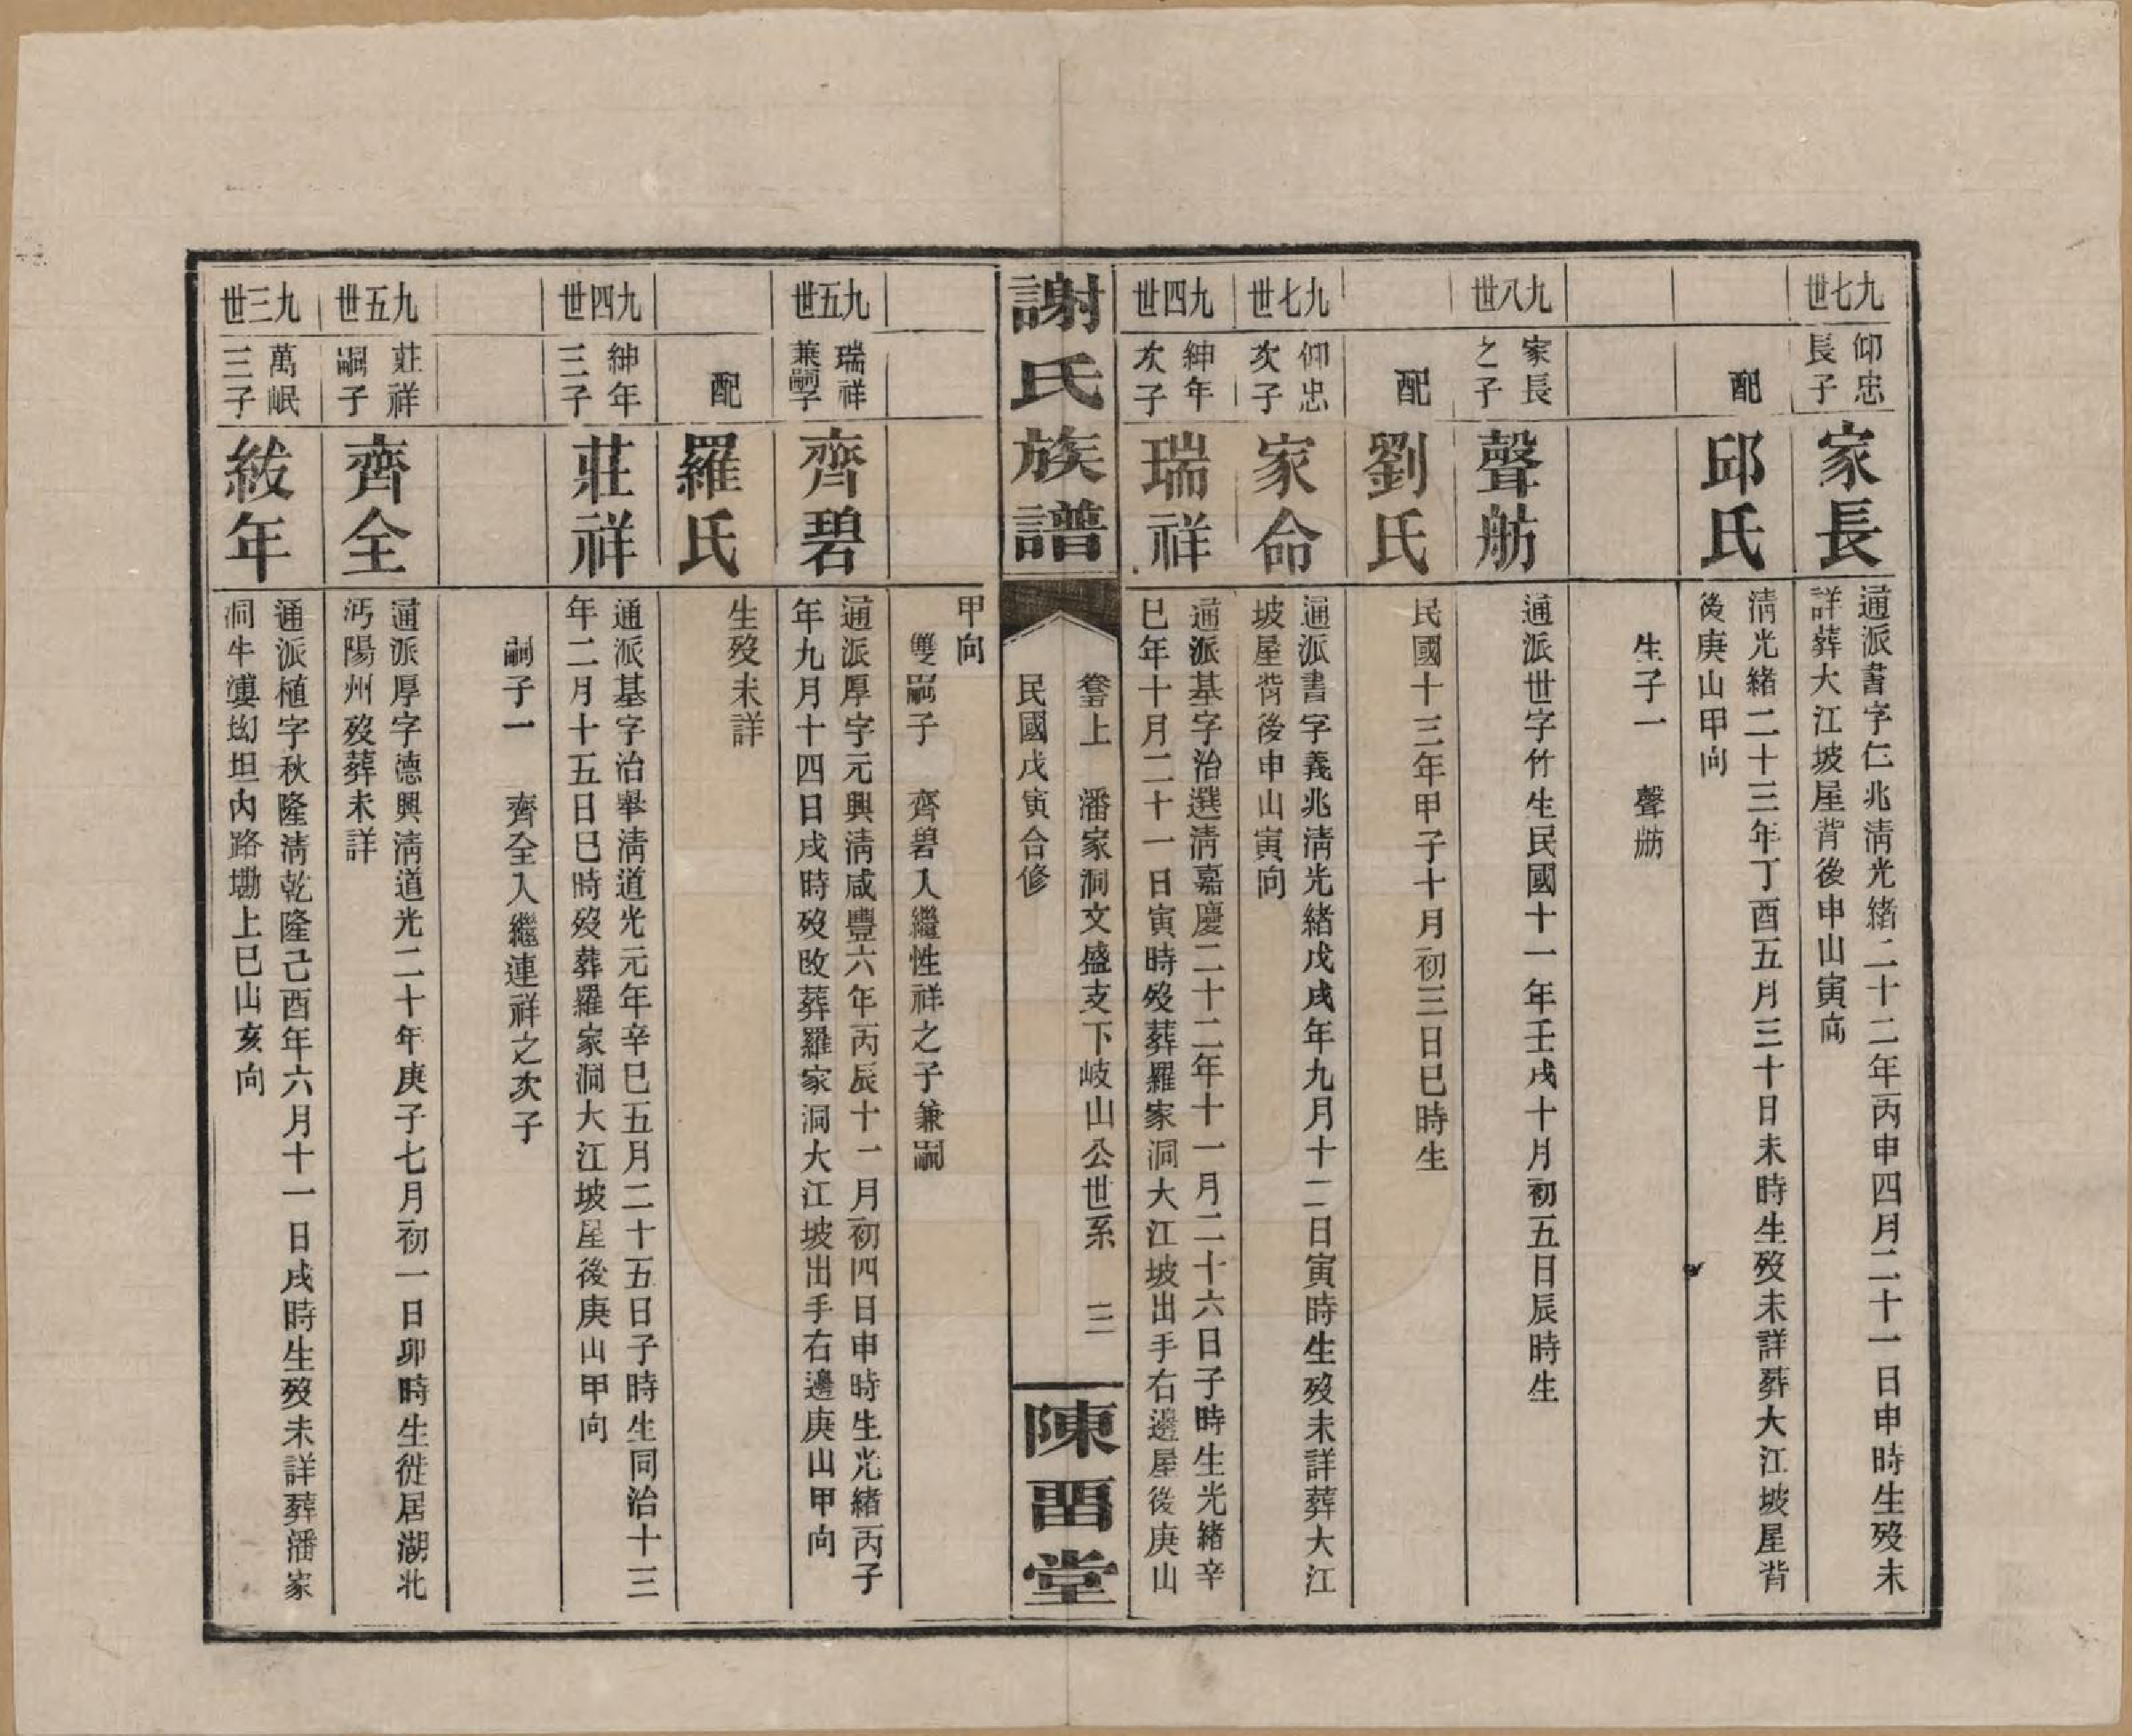 九七世
仰忠長子
家長
通派書字仁兆淸光緒二十二年丙申四月二十一日申時生歿未
詳葬大江坡屋背後申山寅向
配
邱氏
淸光緒二十三年丁酉五月三十日未時生歿未詳葬大江坡屋背
後庚山甲向
生子一　聲舫
九八世
家長之子
聲舫
通派世字竹生民國十一年壬戌十月初五日辰時生
配
劉氏
民國十三年甲子十月初三日巳時生
九七世
仰忠次子
家命
通派書字義兆淸光緒戊戌年九月十二日寅時生歿未詳葬大江
坡屋背後申山寅向
九四世
紳年次子
瑞祥
通派基字治選淸嘉慶二十二年十一月二十六日子時生光緒辛
巳年十月二十一日寅時歿葬羅家洞大江坡出手右邊屋後庚山
謝氏族譜
卷上　潘家洞文盛支下岐山公世系　三
民國戊寅合修
陳畱堂
甲向
雙嗣子　齊碧入繼性祥之子兼嗣
九五世
瑞祥兼嗣子
齊碧
通派厚字元興淸咸豐六年丙辰十一月初四日申時生光緒丙子
年九月十四日戌時歿改葬羅家洞大江坡出手右邊庚山甲向
配
羅氏
生歿未詳
九四世
紳年三子
莊祥
通派基字治舉淸道光元年辛巳五月二十五日子時生同治十三
年二月十五日巳時歿葬羅家洞大江坡屋後庚山甲向
嗣子一　齊全入繼連祥之次子
九五世
莊祥嗣子
齊全
通派厚字德興淸道光二十年庚子七月初一日卯時生徙居湖北
沔陽州歿葬未詳
九三世
萬岷三子
紱年
通派植字秋隆淸乾隆己酉年六月十一日戌時生歿未詳葬潘家
洞牛漊㘭坦內路墈上巳山亥向